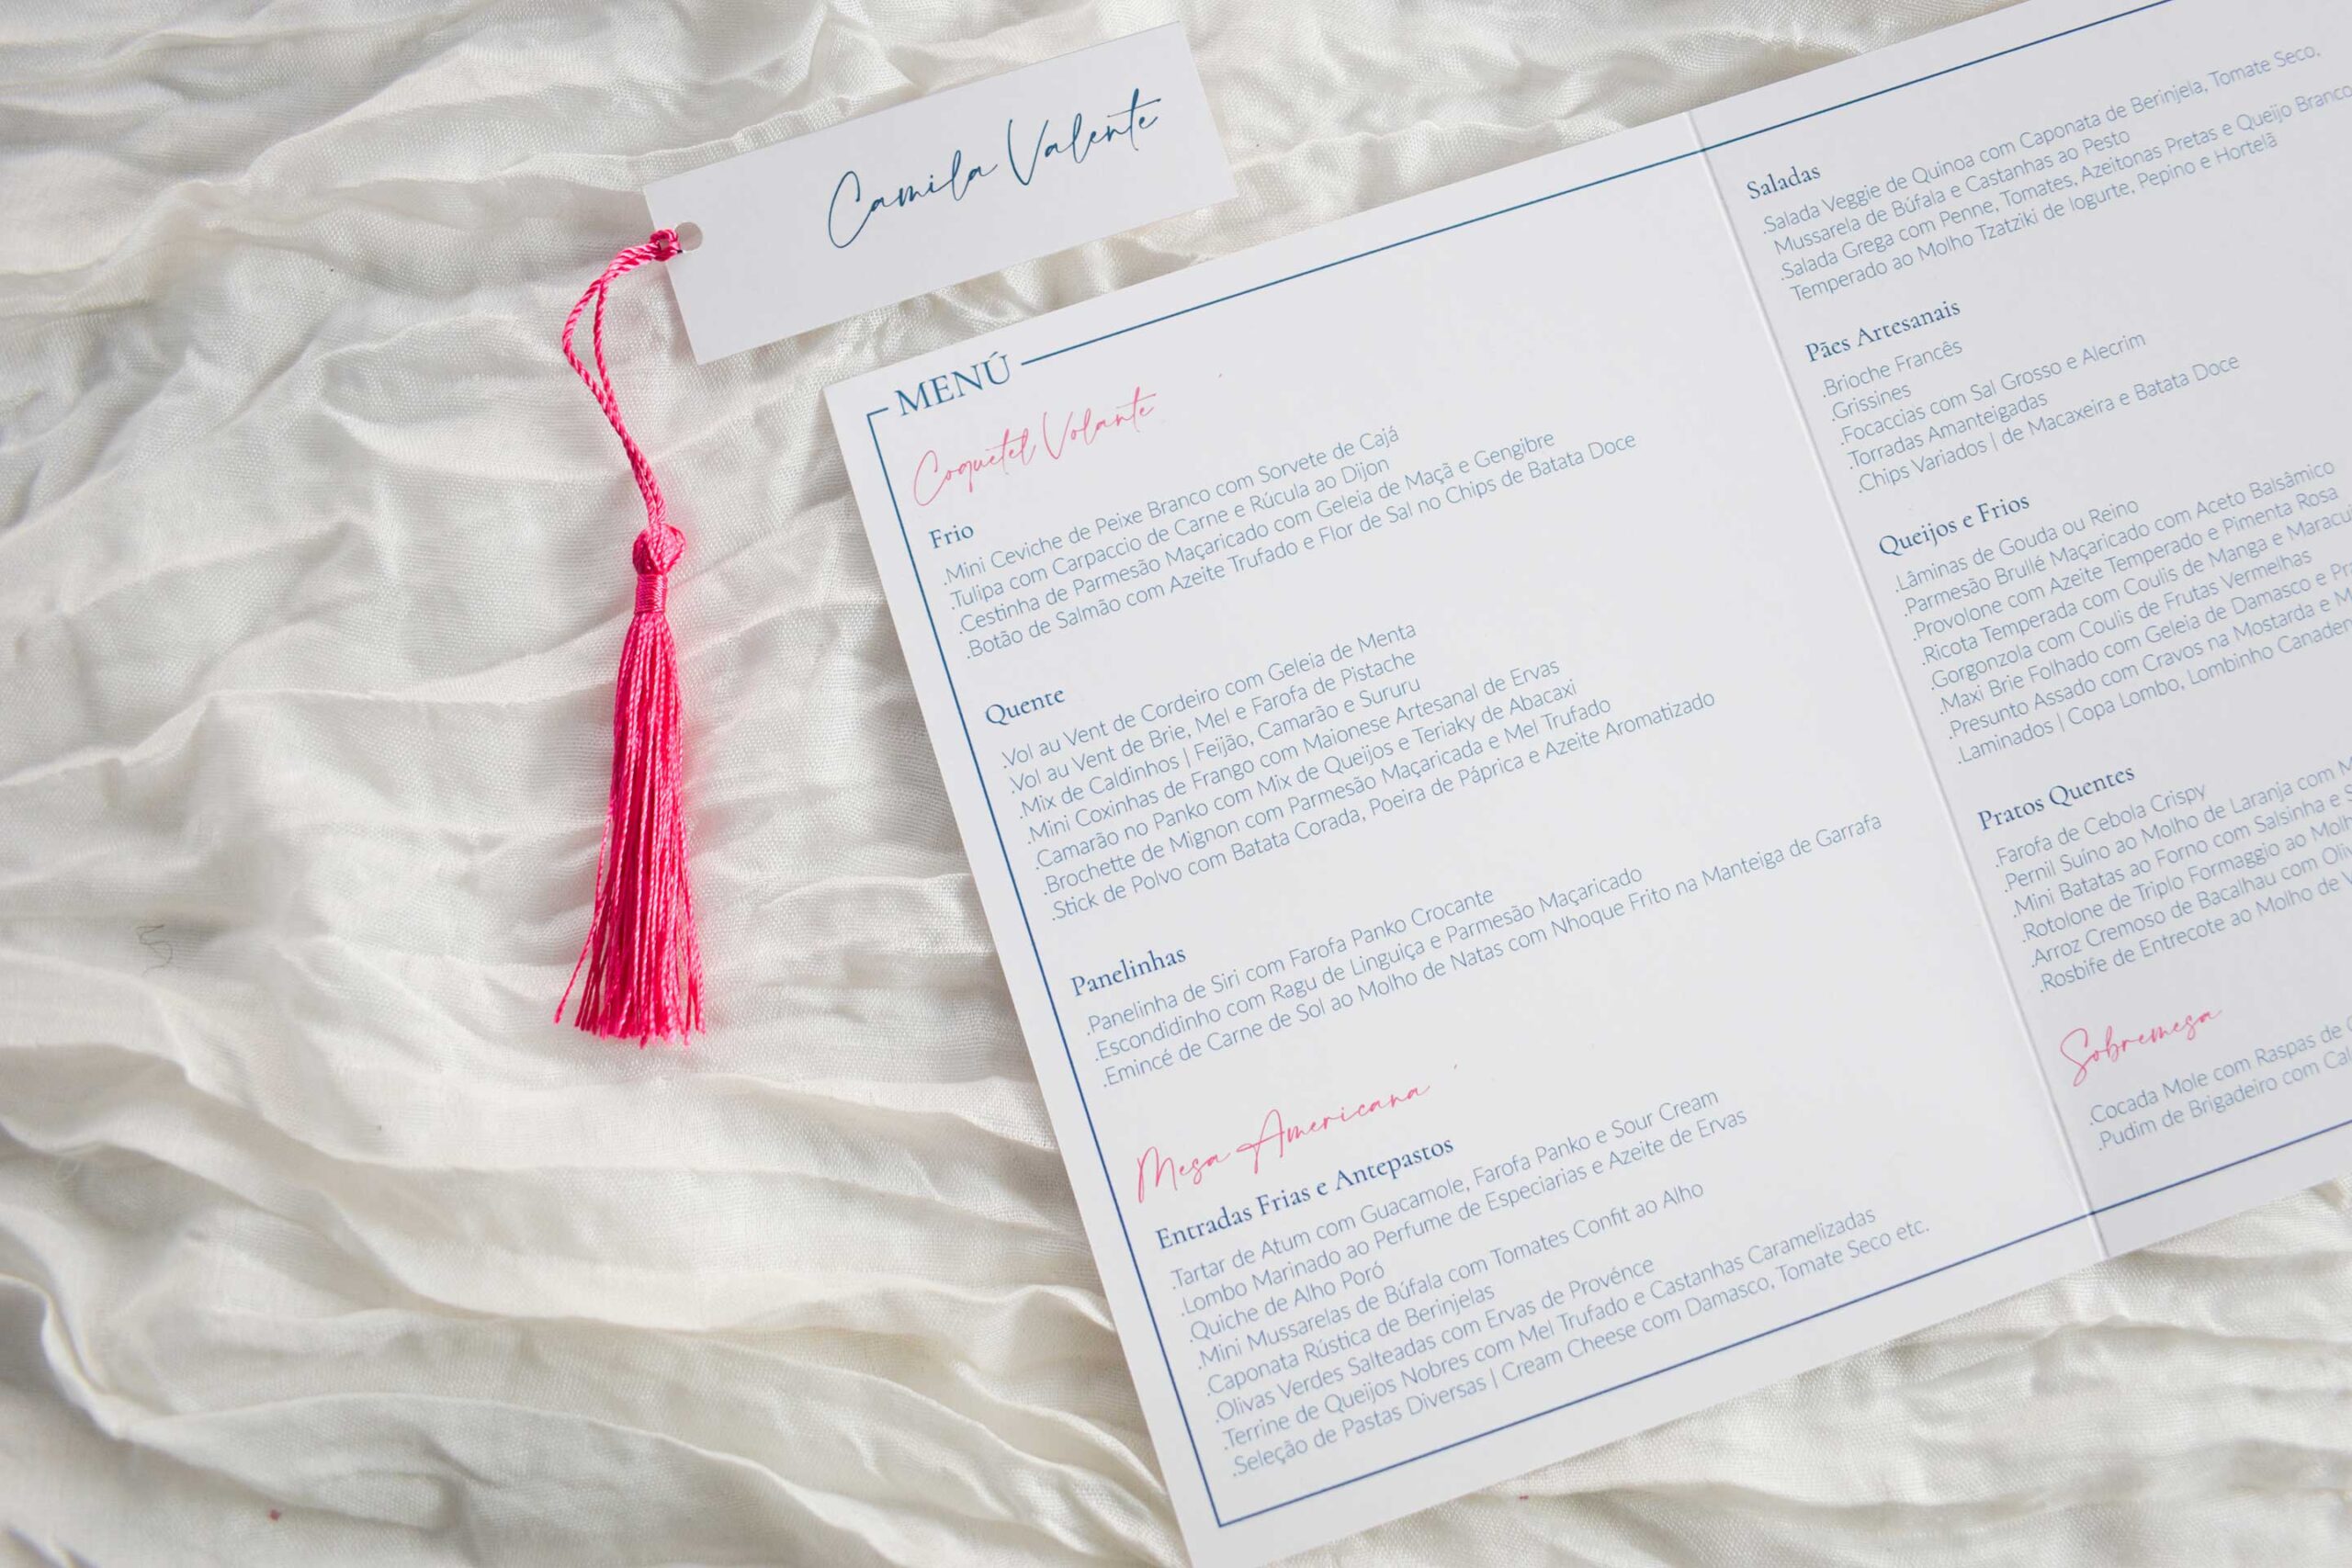 Camila Valente
MENÚ
Coquetel Volante
Frio
.Mini Ceviche de Peixe Branco com Sorvete de Cajá
.Tulipa com Carpaccio de Carne e Rúcula ao Dijon
.Cestinha de Parmesão Maçaricado com Geleia de Maçã e Gengibre
.Botão de Salmão com Azeite Trufado e Flor de Sal no Chips de Batata Doce
Quente
.Vol au Vent de Cordeiro com Geleia de Menta
.Vol au Vent de Brie, Mel e Farofa de Pistache
.Mix de Caldinhos | Feijão, Camarão e Sururu
.Mini Coxinhas de Frango com Maionese Artesanal de Ervas
.Camarão no Panko com Mix de Queijos e Teriaky de Abacaxi
.Brochette de Mignon com Parmesão Maçaricada e Mel Trufado
.Stick de Polvo com Batata Corada, Poeira de Páprica e Azeite Aromatizado
Panelinhas
.Panelinha de Siri com Farofa Panko Crocante
.Escondidinho com Ragu de Linguiça e Parmesão Maçaricado
.Emincé de Carne de Sol ao Molho de Natas com Nhoque Frito na Manteiga de Garrafa
Mesa Americana
Entradas Frias e Antepastos
.Tartar de Atum com Guacamole, Farofa Panko e Sour Cream
.Lombo Marinado ao Perfume de Especiarias e Azeite de Ervas
.Quiche de Alho Poró
.Mini Mussarelas de Búfala com Tomates Confit ao Alho
.Caponata Rústica de Berinjelas
.Olivas Verdes Salteadas com Ervas de Provénce
.Terrine de Queijos Nobres com Mel Trufado e Castanhas Caramelizadas
.Seleção de Pastas Diversas | Cream Cheese com Damasco, Tomate Seco etc.
Saladas
.Salada Veggie de Quinoa com Caponata de Berinjela, Tomate Seco,
Mussarela de Búfala e Castanhas ao Pesto
.Salada Grega com Penne, Tomates, Azeitonas Pretas e Queijo Branco
Temperado ao Molho Tzatziki de Iogurte, Pepino e Hortelã
Pães Artesanais
.Brioche Francês
.Grissines
.Focaccias com Sal Grosso e Alecrim
.Torradas Amanteigadas
.Chips Variados | de Macaxeira e Batata Doce
Queijos e Frios
.Lâminas de Gouda ou Reino
.Parmesão Brullé Maçaricado com Aceto Balsâmico
.Provolone com Azeite Temperado e Pimenta Rosa
.Ricota Temperada com Coulis de Manga e
.Gorgonzola com Coulis de Frutas Vermelhas
.Maxi Brie Folhado com Geleia de Damasco e
.Presunto Assado com Cravos na Mostarda e
.Laminados | Copa Lombo, Lombinho
Pratos Quentes
.Farofa de Cebola Crispy
.Pernil Suíno ao Molho de Laranja com
.Mini Batatas ao Forno com Salsinha e
.Rotolone de Triplo Formaggio ao
.Arroz Cremoso de Bacalhau com
.Rosbife de Entrecote ao Molho de
Sobremesa
.Cocada Mole com Raspas de
.Pudim de Brigadeiro com